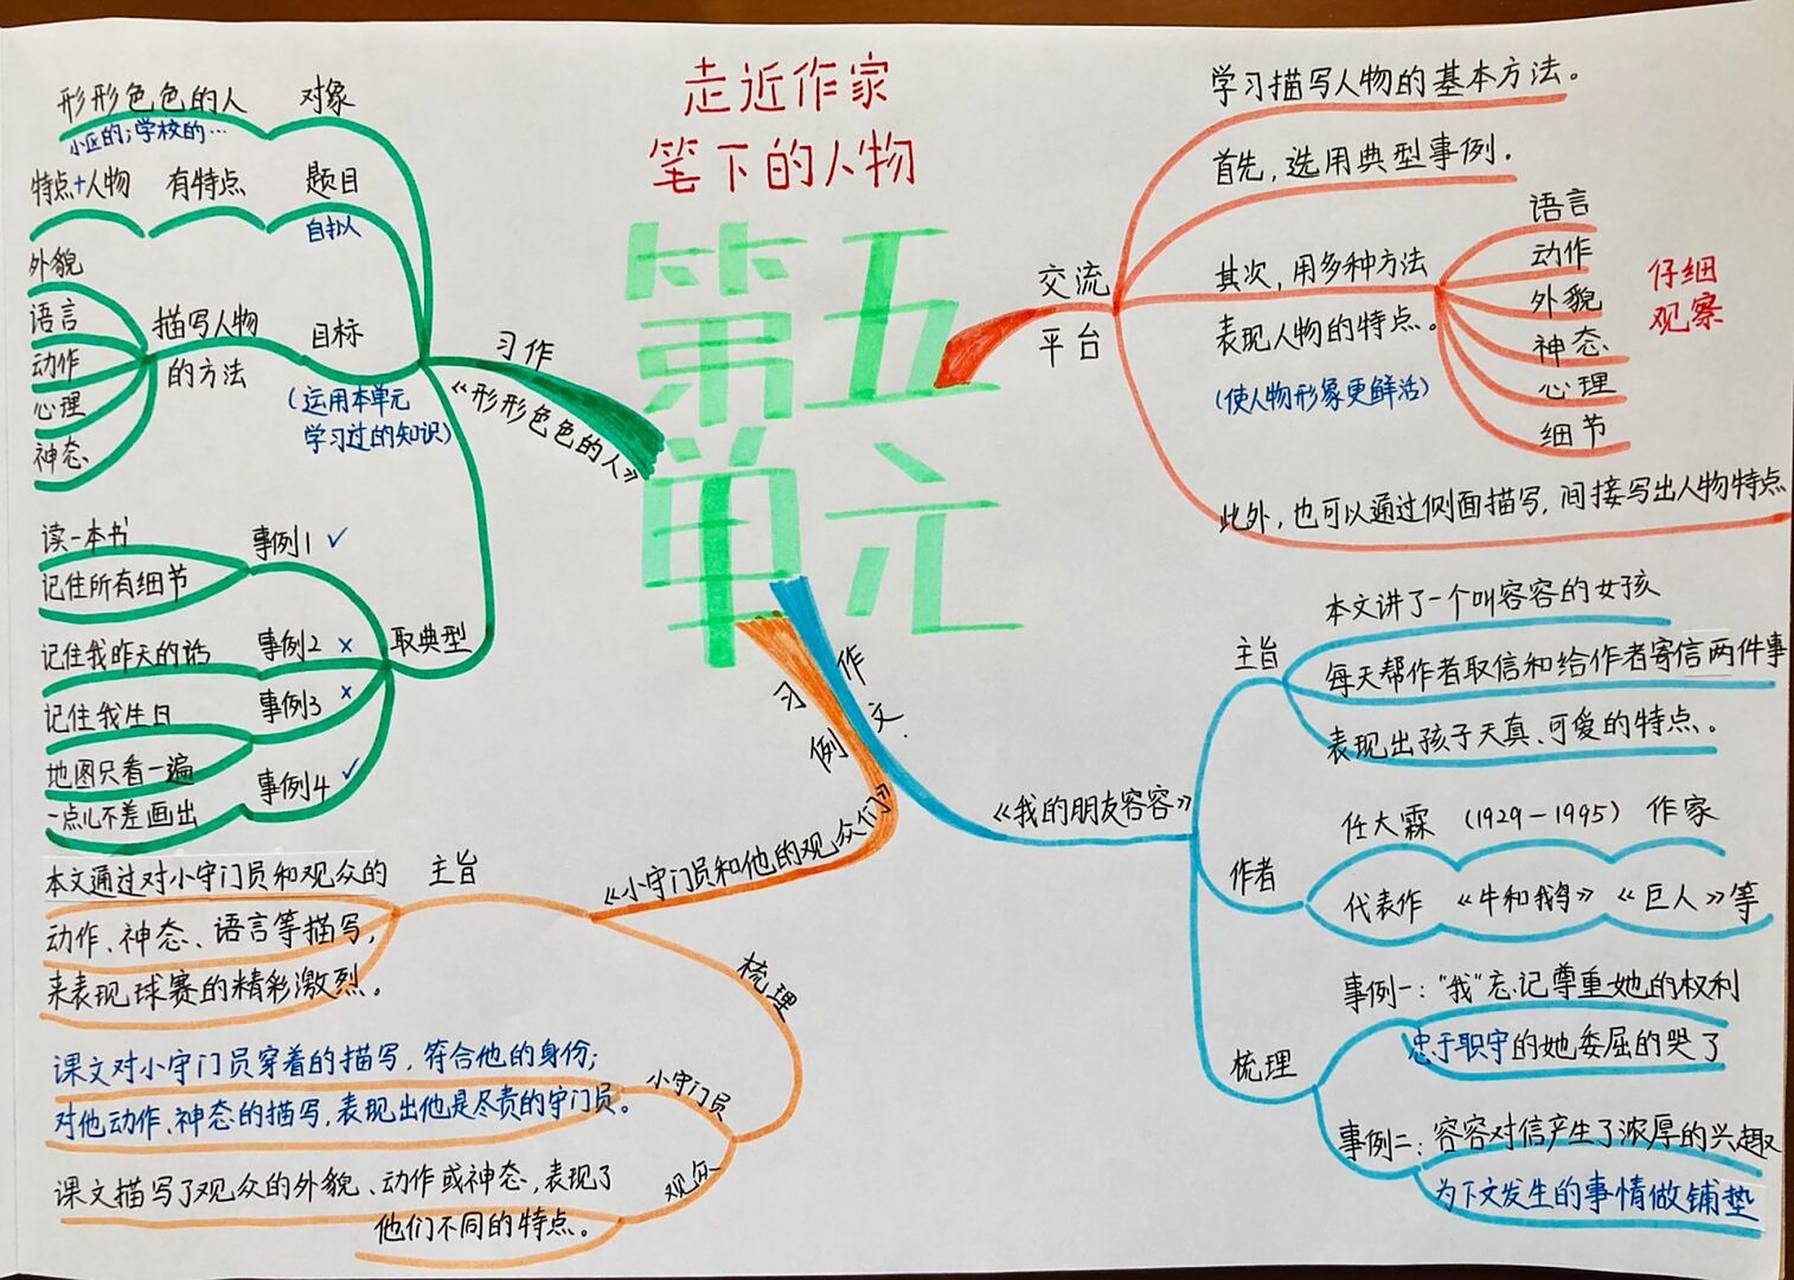 走近作家
笔下的人物
第五
单元
交流
平台
学习描写人物的基本方法。
首先,选用典型事例.
其次,用多种方法
表现人物的特点。
(使人物形象更鲜活)
语言
动作
外貌
神态
心理
细节
仔细
观察
此外,也可以通过侧面描写,间接写出人物特点
习作
《形形色色的人》
对象
形形色色的人
小区的;学校的…
题目
自拟
有特点
特点+人物
目标
(运用本单元
学习过的知识)
描写人物
的方法
外貌
语言
动作
心理
神态
取典型
事例1 ✓
读一本书
记住所有细节
事例2 ×
记住我昨天的话
事例3 ×
记住我生日
事例4 ✓
地图只看一遍
一点儿不差画出
习作
例文
《小守门员和他的观众们》
主旨
本文通过对小守门员和观众的
动作、神态、语言等描写,
来表现球赛的精彩激烈。
梳理
小守门员
课文对小守门员穿着的描写,符合他的身份;
对他动作、神态的描写,表现出他是尽责的守门员。
观众
课文描写了观众的外貌、动作或神态,表现了
他们不同的特点。
《我的朋友容容》
主旨
本文讲了一个叫容容的女孩
每天帮作者取信和给作者寄信两件事
表现出孩子天真、可爱的特点。
作者
任大霖 (1929-1995) 作家
代表作 《牛和鹅》《巨人》等
梳理
事例一:"我"忘记尊重她的权利
忠于职守的她委屈的哭了
事例二:容容对信产生了浓厚的兴趣
为下文发生的事情做铺垫